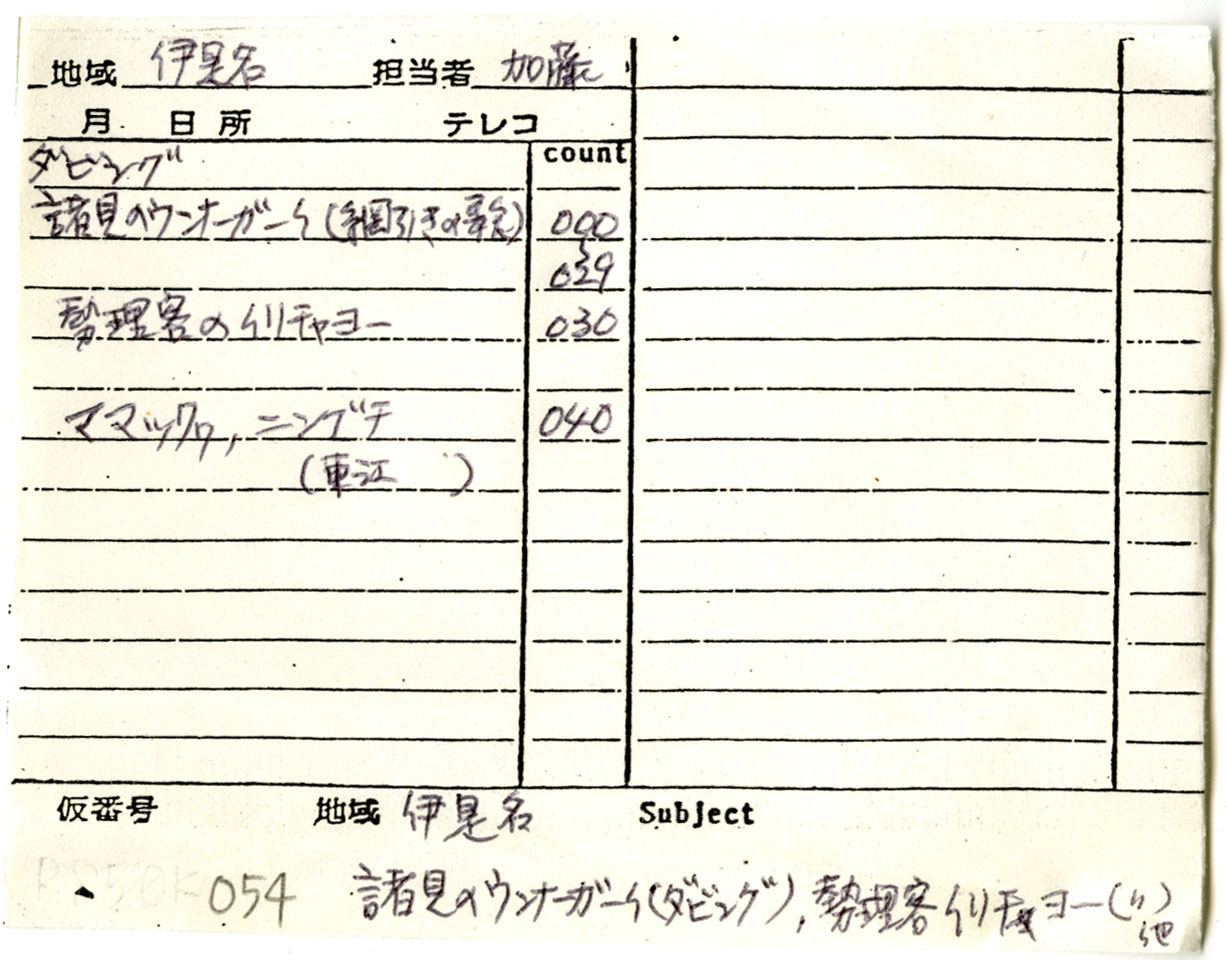 地域 伊是名 担当者 加藤
月 日 所 テレコ
ダビング count
諸見のウンナーガーイ(綱引きの歌) 000
〜
029
勢理客のイリチャヨー 030
ママックヮ, ニングヮチ 040
(東江 )
仮番号 地域 伊是名 Subject
054 諸見のウンナーガーイ(ダビング), 勢理客イリチャヨー(〃)
他